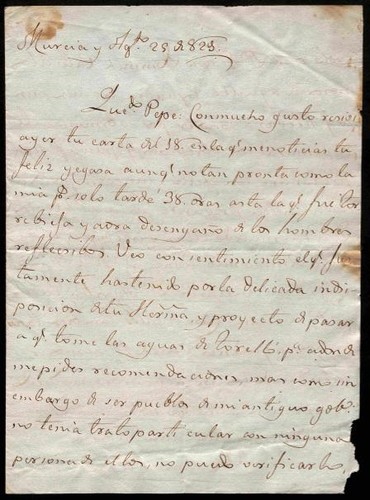 Murcia y Ag.to 25 de 825.
Que.do Pepe: Con mucho gusto reciví
ayer tu carta del 18. en la q.e me noticias tu
feliz llegada aunq.e no tan pronta como la
mia p.s solo tardé 38. oras asta la q.e fué
y aora desengaño de los hombres
Veo con sentimiento el q.e
tamente ha tenido por la delicada indis
posicion de tu Herm̃a, y proyecto de pasar
a q.e tome las aguas de p.a donde
me pides recomendaciones, mas como, sin
embargo de ser pueblos de mi antiguo gob.no
no tenia trato parti cular con ninguna
persona de ellos, no puedo verificarlo,